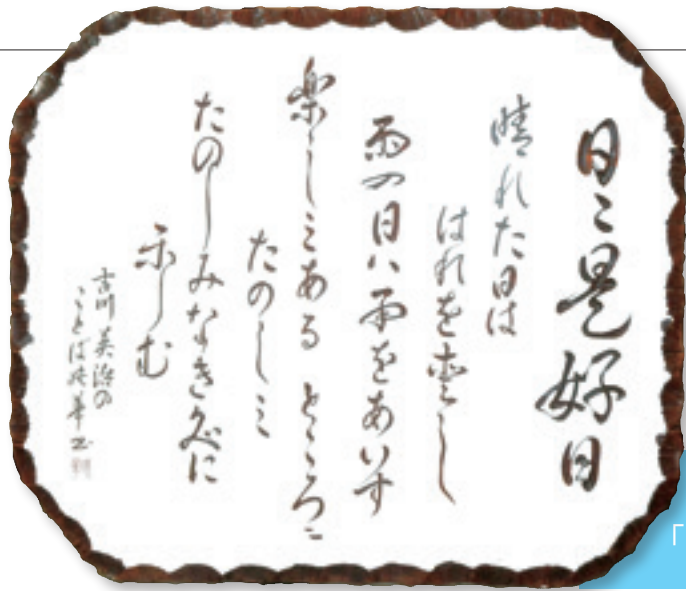 日々是好日
晴れた日は
はれを愛し
雨の日ハ雨をあいす
楽しミある ところニ
たのしミ
たのしみなき処に
楽しむ
吉川英治の
ことば
「